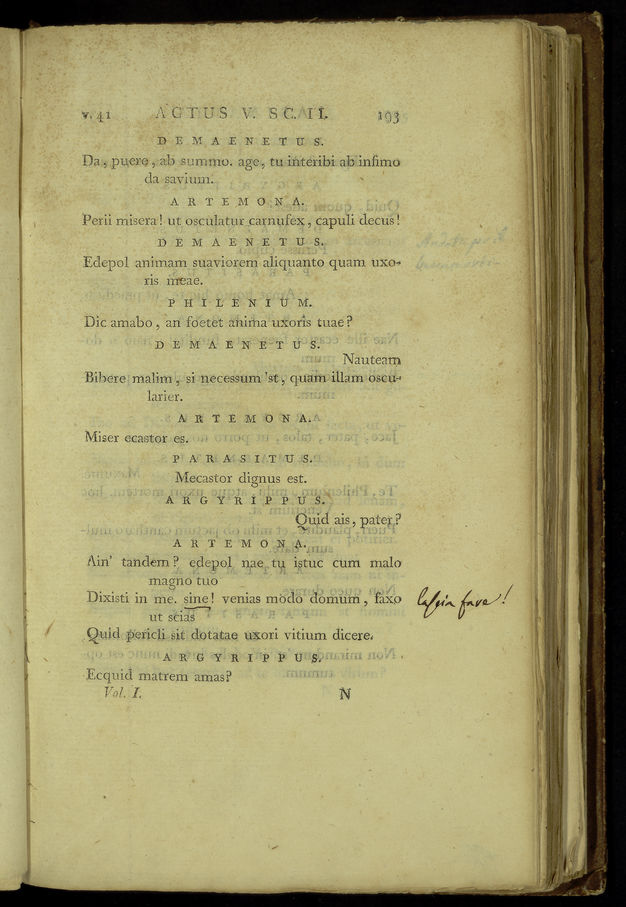 v. 41 ACTUS V. SC. II. 193
DEMAENETUS.
Da, puere, ab summo. age, tu interibi ab infimo
da savium.
ARTEMONA.
Perii misera! ut osculatur carnufex, capuli decus!
DEMAENETUS.
Edepol animam suaviorem aliquanto quam uxo-
ris meae.
PHILENIUM.
Dic amabo, an foetet anima uxoris tuae?
DEMAENETUS.
Nauteam
Bibere malim, si necessum 'st, quam illam oscu-
larier.
ARTEMONA.
Miser ecastor es.
PARASITUS.
Mecastor dignus est.
ARGYRIPPUS.
Quid ais, pater?
ARTEMONA.
Ain' tandem? edepol nae tu istuc cum malo
magno tuo
Dixisti in me. sine! venias modo domum, faxo
lascia fare!
ut scias
Quid pericli sit dotatae uxori vitium dicere.
ARGYRIPPUS.
Ecquid matrem amas?
Vol. I. N